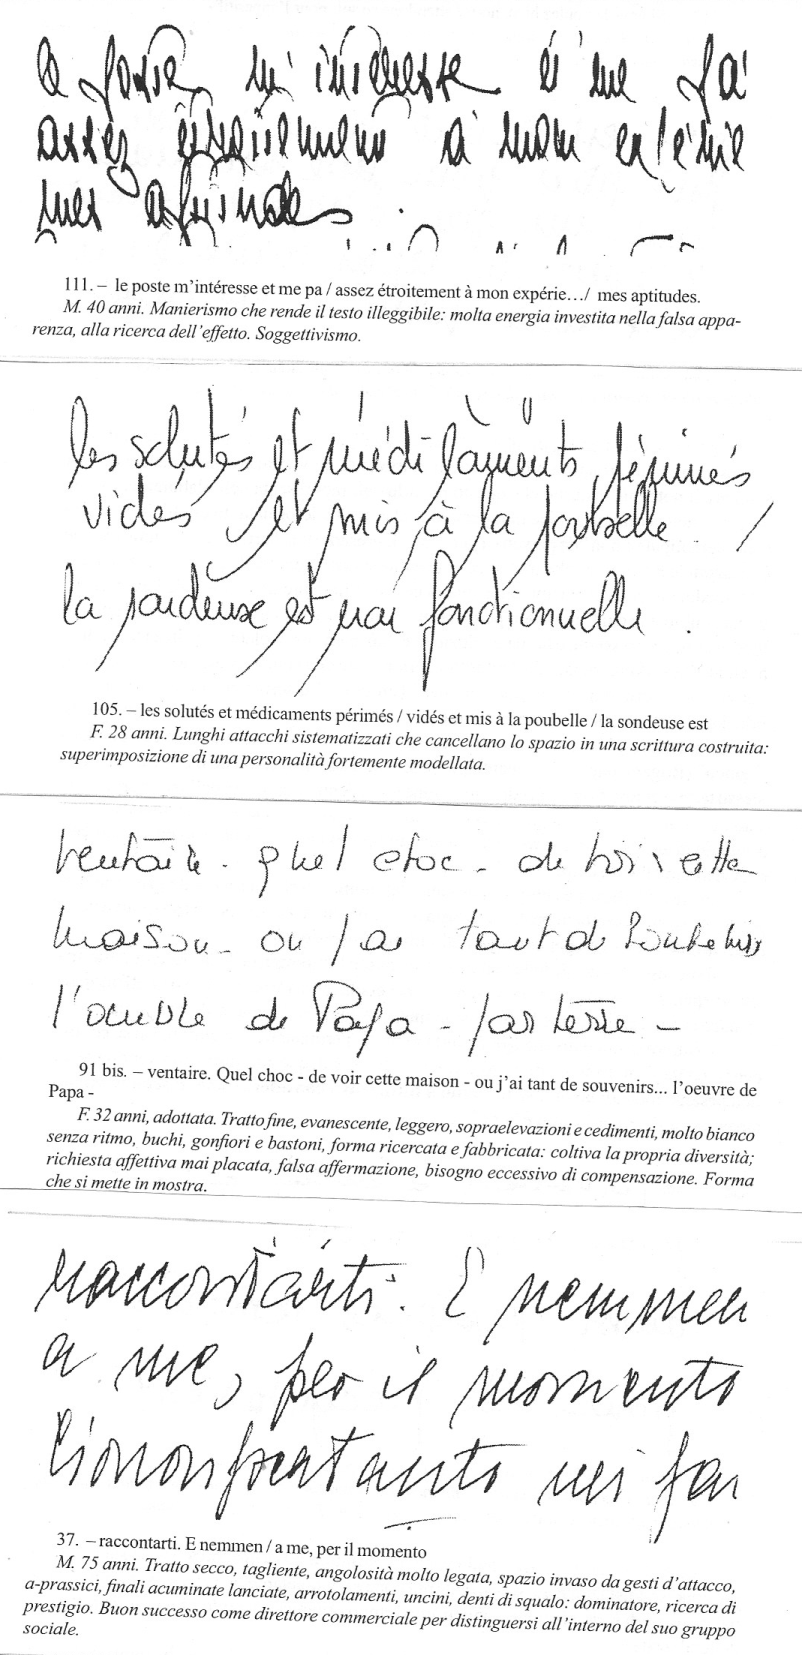 le poste m'intéresse et me pa
assez étroitement à mon expérie
mes aptitudes
111. – le poste m'intéresse et me pa / assez étroitement à mon expérie…/ mes aptitudes.
M. 40 anni. Manierismo che rende il testo illeggibile: molta energia investita nella falsa appa-
renza, alla ricerca dell'effetto. Soggettivismo.
les solutés et médicaments périmés
vidés et mis à la poubelle /
la sondeuse est non fonctionnelle.
105. – les solutés et médicaments périmés / vidés et mis à la poubelle / la sondeuse est
F. 28 anni. Lunghi attacchi sistematizzati che cancellano lo spazio in una scrittura costruita:
superimposizione di una personalità fortemente modellata.
ventaire - quel choc - de voir cette
maison - ou j'ai tant de souvenirs
l'oeuvre de Papa - par terre -
91 bis. – ventaire. Quel choc - de voir cette maison - ou j'ai tant de souvenirs... l'oeuvre de
Papa -
F. 32 anni, adottata. Tratto fine, evanescente, leggero, sopraelevazioni e cedimenti, molto bianco
senza ritmo, buchi, gonfiori e bastoni, forma ricercata e fabbricata: coltiva la propria diversità;
richiesta affettiva mai placata, falsa affermazione, bisogno eccessivo di compensazione. Forma
che si mette in mostra.
raccontarti. E nemmen
a me, per il momento
mi fai
37. – raccontarti. E nemmen / a me, per il momento
M. 75 anni. Tratto secco, tagliente, angolosità molto legata, spazio invaso da gesti d'attacco,
a-prassici, finali acuminate lanciate, arrotolamenti, uncini, denti di squalo: dominatore, ricerca di
prestigio. Buon successo come direttore commerciale per distinguersi all'interno del suo gruppo
sociale.